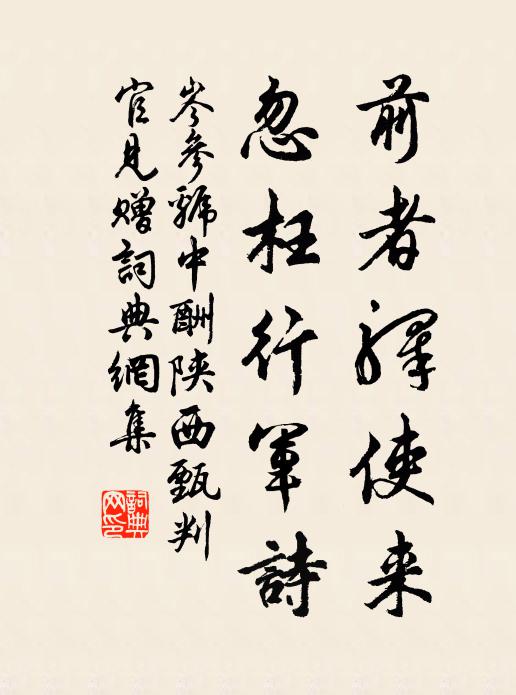 前者驛使来
忽枉行軍詩
岑參虢中酬陝西甄判
官見贈詞典網集
詞典網印